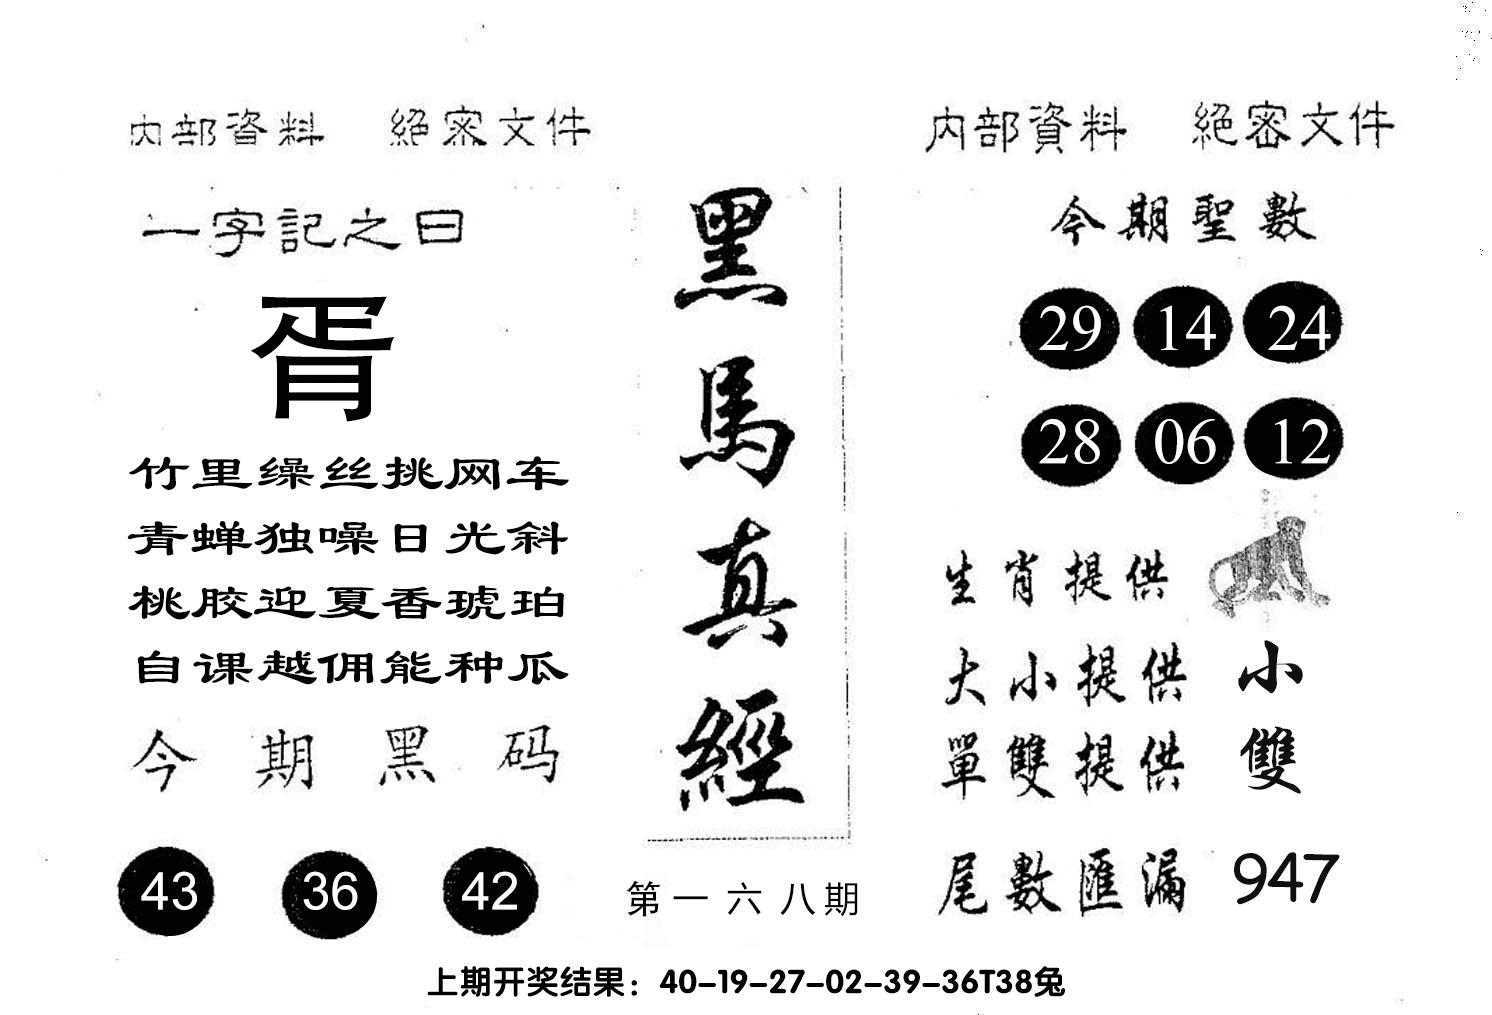 内部資料 絕密文件
一字記之曰
胥
竹里缲丝挑网车
青蝉独噪日光斜
桃胶迎夏香琥珀
自课越佣能种瓜
今期黑码
43 36 42
黑馬真經
第一六八期
内部資料 絕密文件
今期聖數
29 14 24
28 06 12
生肖提供
大小提供 小
單雙提供 雙
尾數匯漏 947
上期开奖结果：40-19-27-02-39-36T38兔